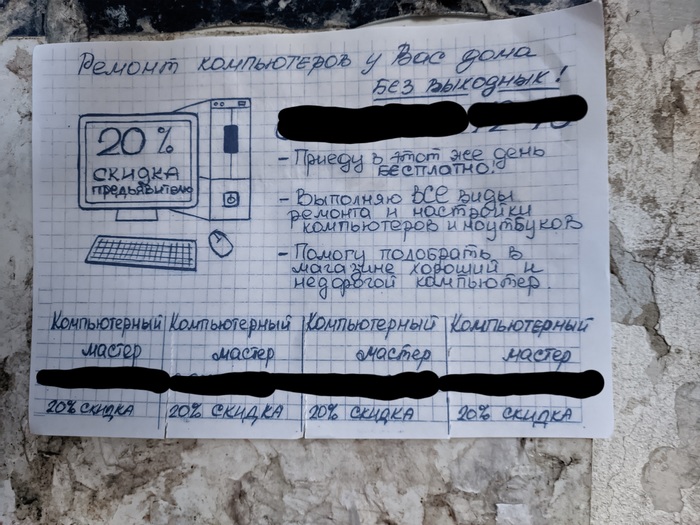 Ремонт компьютеров у Вас дома
Без выходных!
20%
скидка
предъявителю
- Приеду в этот же день
бесплатно.
- Выполняю ВСЕ виды
ремонта и настройки
компьютеров и ноутбуков
- Помогу подобрать в
магазине хороший и
недорогой компьютер.
Компьютерный
мастер
20% скидка
Компьютерный
мастер
20% скидка
Компьютерный
мастер
20% скидка
Компьютерный
мастер
20% скидка